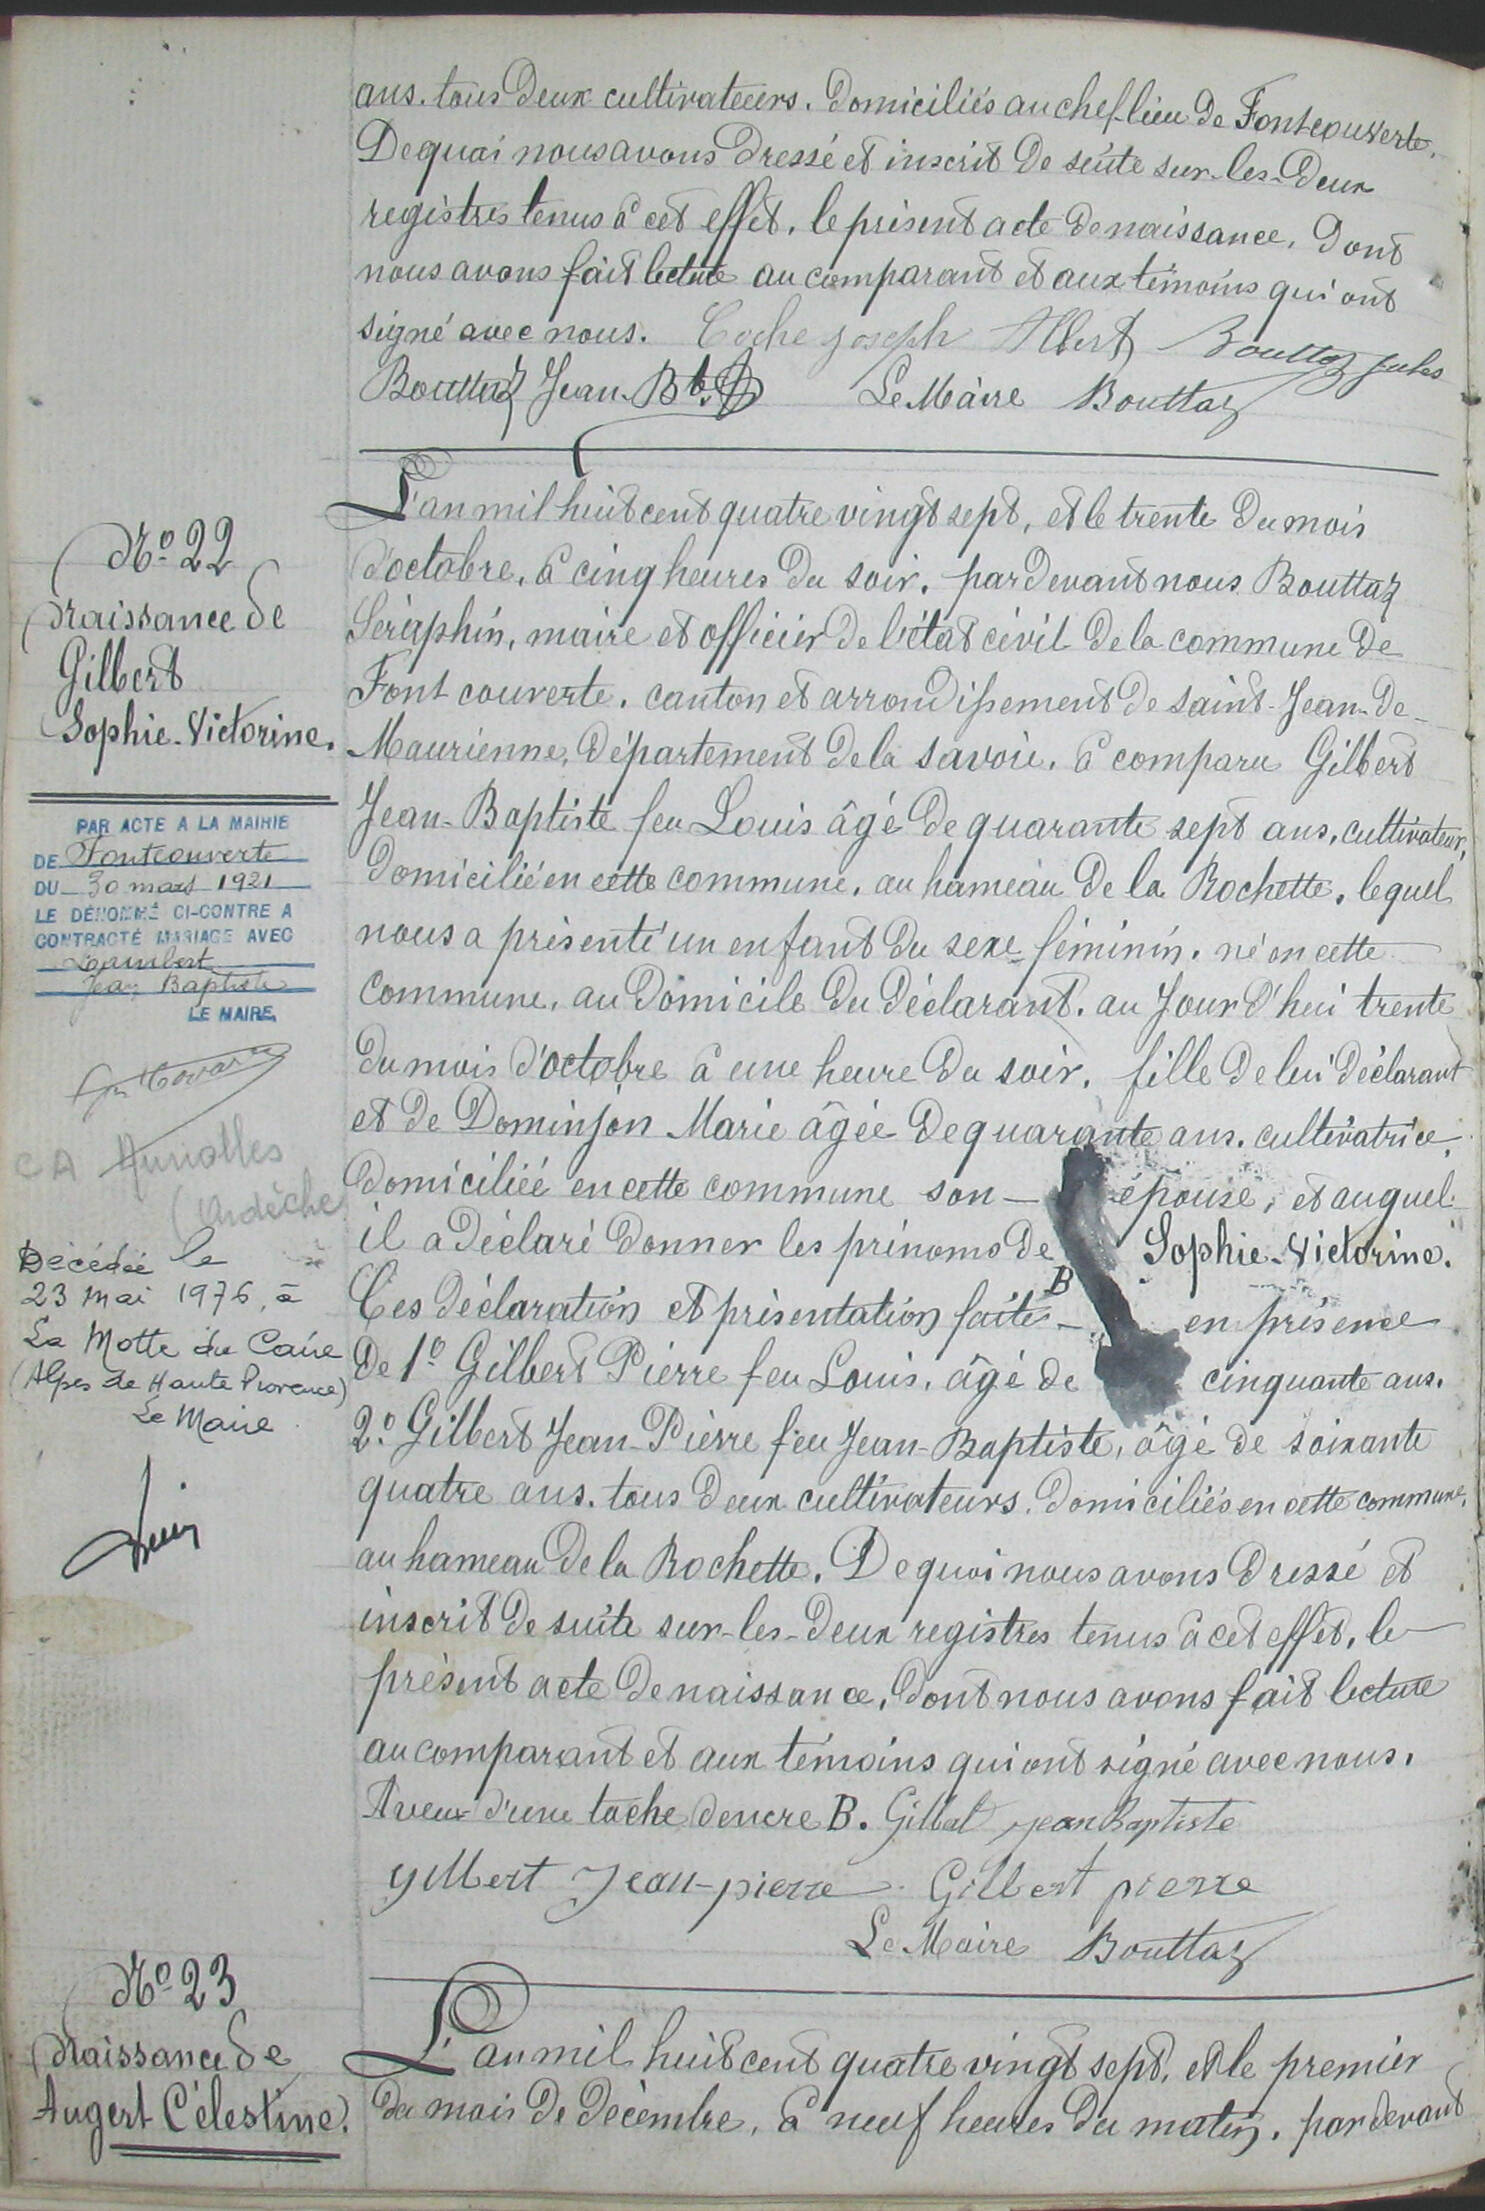 ans. tous deux cultivateurs. domiciliés au chef-lieu de Fontcouverte.
De quoi nous avons dressé et inscrit de suite sur-les-deux
registres tenus à cet effet. le présent acte de naissance. dont
nous avons fait lecture au comparant et aux témoins qui ont
signé avec nous. Coche Joseph Albert Bouttaz Jules
Bouttaz Jean Bte Le Maire Bouttaz
No 22
Naissance de
Gilbert
Sophie-Victorine.
PAR ACTE A LA MAIRIE
DE Fontcouverte
DU 30 mars 1921
LE DÉNOMMÉ CI-CONTRE A
CONTRACTÉ MARIAGE AVEC
Lambert
Jean Baptiste
LE MAIRE,
CA Auriolles
(Ardèche
Décédée le
23 Mai 1976, à
La Motte du Caire
(Alpes de Haute Provence)
Le Maire
L'an mil huit cent quatre vingt sept, et le trente du mois
d'octobre, à cinq heures du soir. par devant nous Bouttaz
Séraphin, maire et officier de l'état civil de la commune de
Font couverte. canton et arrondissement de saint-Jean-de-
Maurienne, département de la savoie. à comparu Gilbert
Jean-Baptiste feu Louis âgé de quarante sept ans, cultivateur,
domicilié en cette commune. au hameau de la Rochette. lequel
nous a présenté un enfant du sexe féminin. né en cette
commune. au domicile du déclarant. au Jour d'hui trente
du mois d'octobre à une heure du soir. fille de lui déclarant
et de Dominjon Marie âgée de quarante ans. cultivatrice,
domiciliée en cette commune son — épouse, et auquel
il a déclaré donner les prénoms de Sophie-Victorine."
Ces déclaration et présentation faites — B en présence
De 1º Gilbert Pierre feu Louis. âgé de cinquante ans.
2º Gilbert Jean-Pierre feu Jean-Baptiste, âgé de soixante
quatre ans. tous deux cultivateurs. domiciliés en cette commune.
au hameau de la Rochette. De quoi nous avons dressé et
inscrit de suite sur-les-deux registres tenus à cet effet. le
présent acte de naissance, dont nous avons fait lecture
au comparant et aux témoins qui ont signé avec nous.
Aveux d'une tache d'encre B. Gilbert jean Baptiste
gilbert Jean-pierre Gilbert pierre
Le Maire Bouttaz
No 23
Naissance de
Augert Célestine.
L'an mil huit cent quatre vingt sept, et le premier
du mois de décembre, à neuf heures du matin. par devant